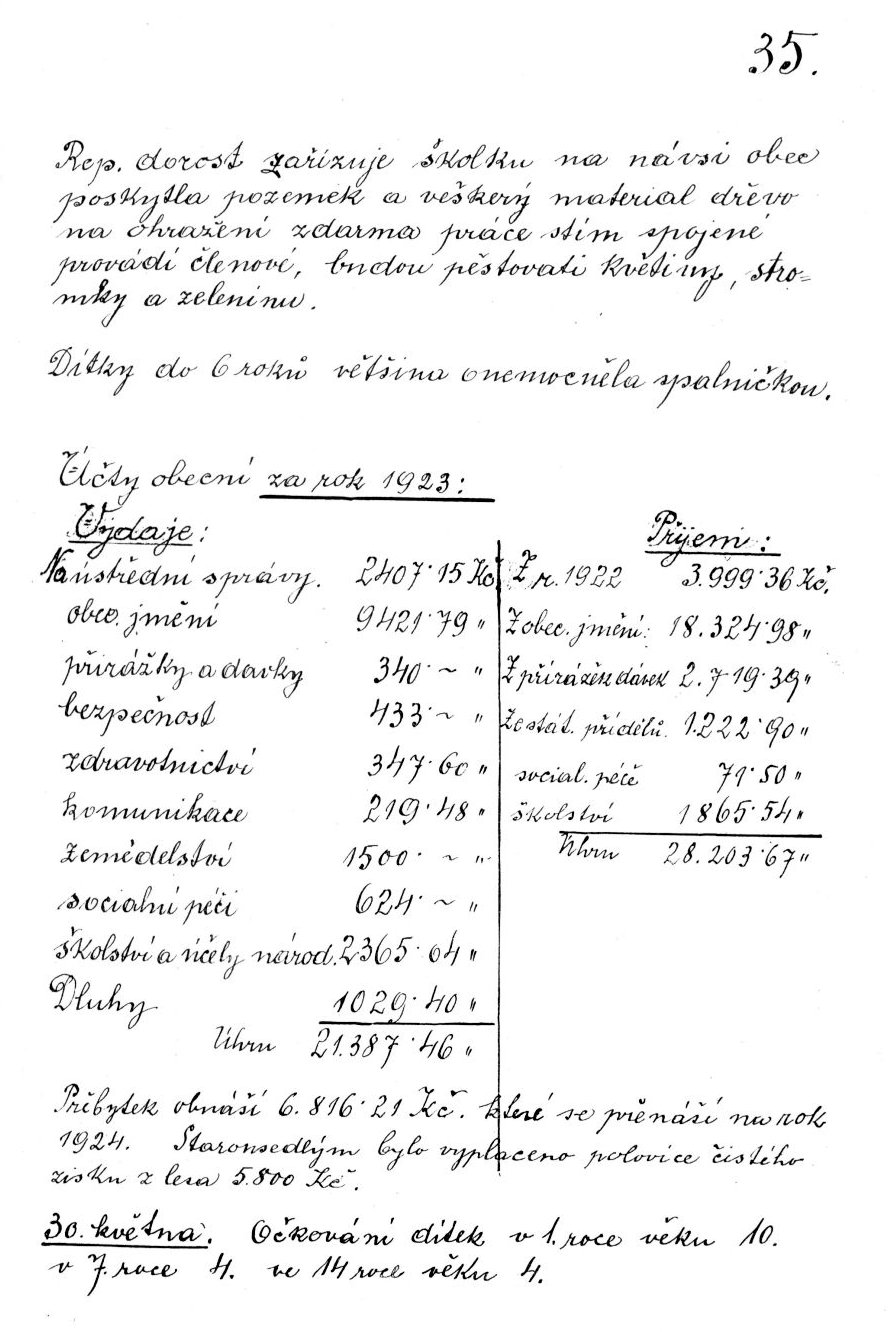 35.
Rep. dorost zařizuje školku na návsi obec
poskytla pozemek a veškerý material dřevo
na ohražení zdarma práce stím spojené
provádí členové, budou pěstovati květiny, stro=
mky a zeleninu.
Dítky do 6 roků většina onemocněla spalničkou.
Účty obecní za rok 1923:
Výdaje:
Na ústřední správy. 2407·15 Kč
obec. jmění 9421·79 "
přirážky a davky 340·~ "
bezpečnost 433·~ "
zdravotnictví 347·60 "
komunikace 219·48 "
zemědelství 1500·~ "
socialní péči 624·~ "
školství a účely národ. 2365·04 "
Dluhy 1029·40 "
Úhrn 21.387·46 "
Přijem:
Z r. 1922 3.999·36 Kč.
Z obec. jmění: 18.324·98 "
Z přirážek dávek 2.719·39 "
Ze stát. přídělů. 1.222·90 "
social. péče 71·50 "
školství 1865·54 "
Úhrn 28.203·67 "
Přebytek obnáší 6.816·21 Kč. které se přenáší na rok
1924. Starousedlým bylo vyplaceno polovice čistého
zisku z lesa 5.800 Kč.
30. května. Očkování dítek v 1. roce věku 10.
v 7. roce 4. ve 14 roce věku 4.